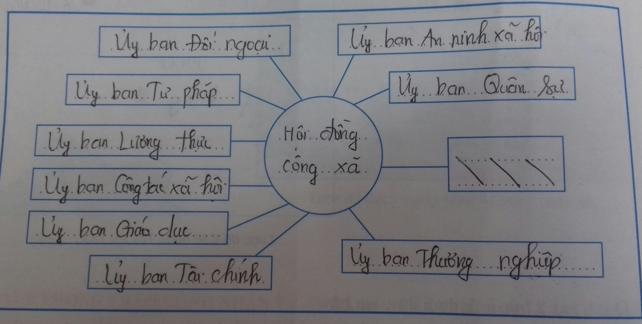 Ủy ban Đối ngoại
Ủy ban An ninh xã hội
Ủy ban Tư pháp
Ủy ban Quân sự
Ủy ban Lương thực
Hội đồng
công xã
Ủy ban Công tác xã hội
Ủy ban Giáo dục
Ủy ban Tài chính
Ủy ban Thương nghiệp